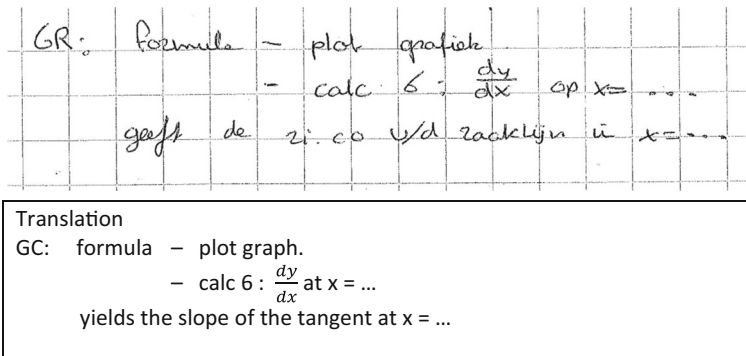 GR: formule - plot grafiek.
- calc 6 : dy/dx op x= ....
geeft de ri.co v/d raaklijn in x=....
Translation
GC: formula – plot graph.
– calc 6 : dy/dx at x = ...
yields the slope of the tangent at x = ...